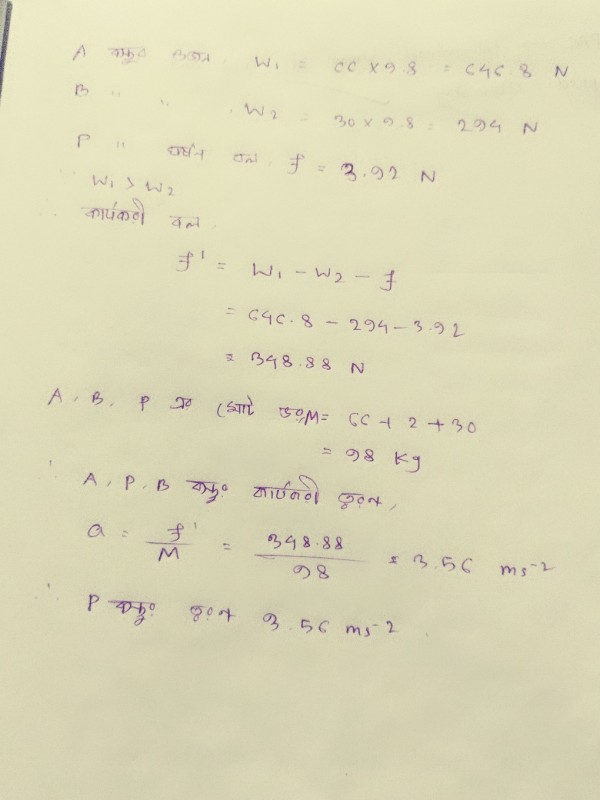 A বস্তুর ওজন, W₁ = 66 × 9.8 = 646.8 N
B " " , W₂ = 30 × 9.8 = 294 N
P " ঘর্ষণ বল, f = 3.92 N
W₁ > W₂
∴ কার্যকরী বল,
f' = W₁ - W₂ - f
= 646.8 - 294 - 3.92
= 348.88 N
A, B, P এর মোট ভর, M = 66 + 2 + 30
= 98 Kg
∴ A, P, B বস্তুর কার্যকরী ত্বরণ,
a = f'/M = 348.88/98 = 3.56 ms⁻²
∴ P বস্তুর ত্বরণ 3.56 ms⁻².